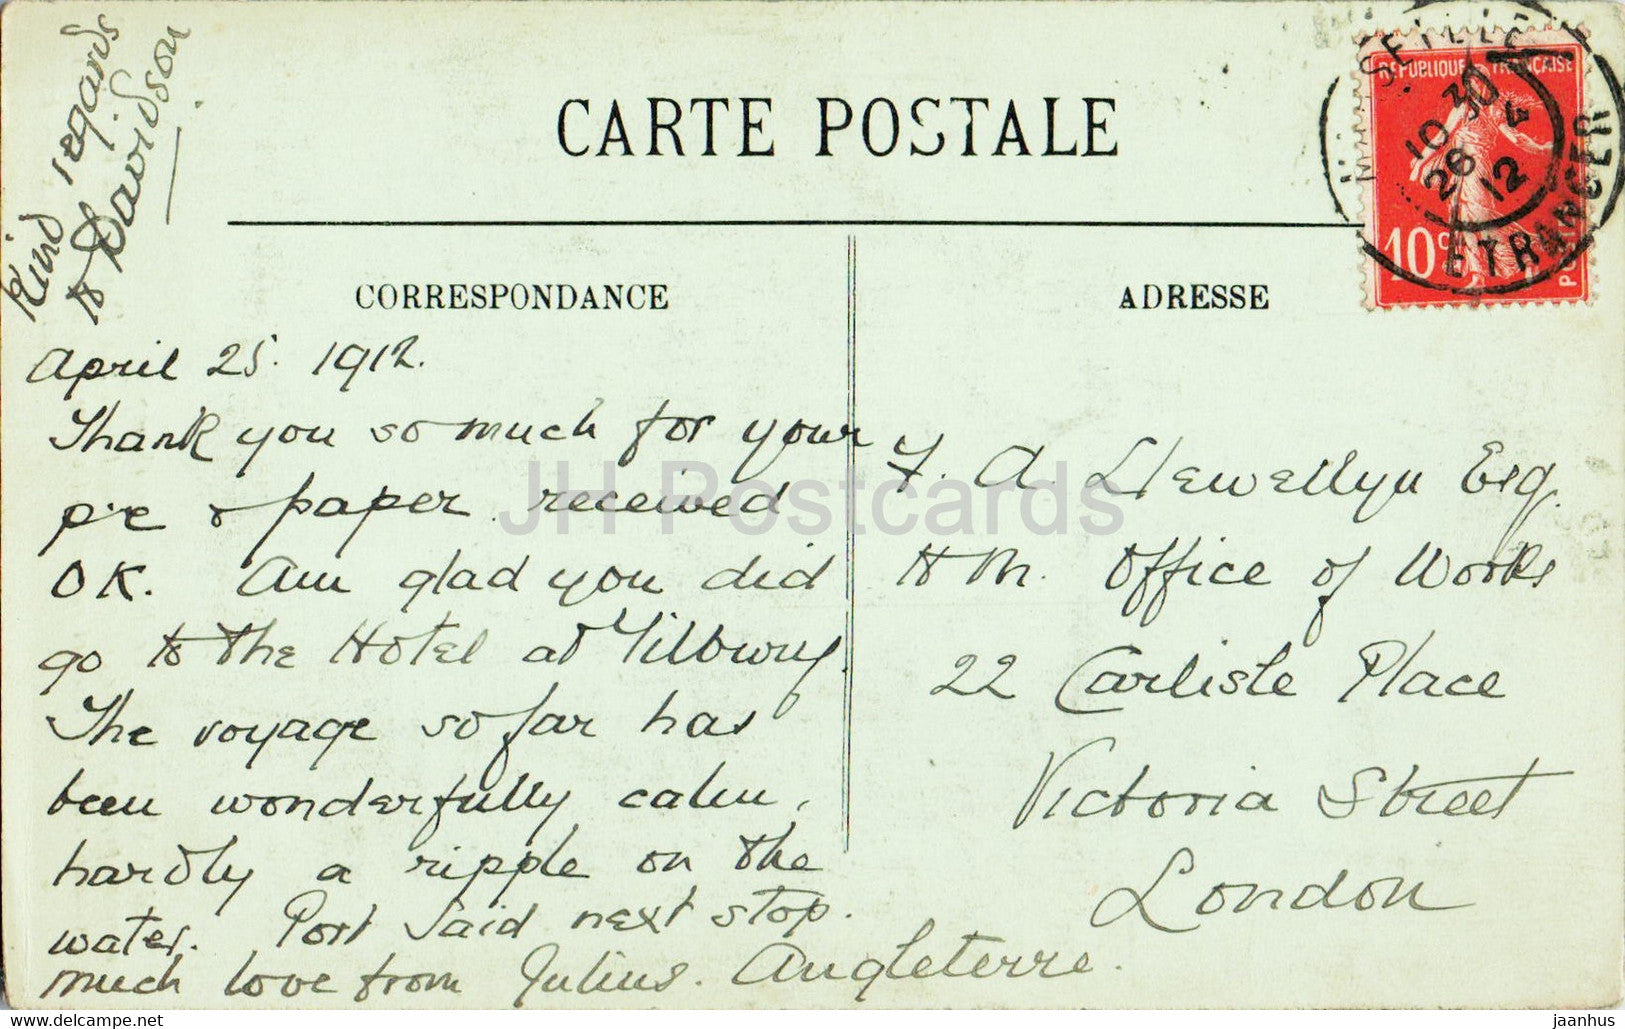 Kind regards
to Davidson
CARTE POSTALE
CORRESPONDANCE
April 25. 1912.
Thank you so much for your
p.c & paper received
OK. Am glad you did
go to the Hotel at Tilbury.
The voyage so far has
been wonderfully calm,
hardly a ripple on the
water. Port Said next stop.
much love from Julius.
ADRESSE
F. A. Llewellyn Esq.
H M. Office of Works
22 Carlisle Place
Victoria Street
London
Angleterre.
REPUBLIQUE FRANÇAISE
10c
POSTES
MARSEILLE
10 30
28 4
12
ETRANGER
JH Postcards
www.delcampe.net
jaanhus